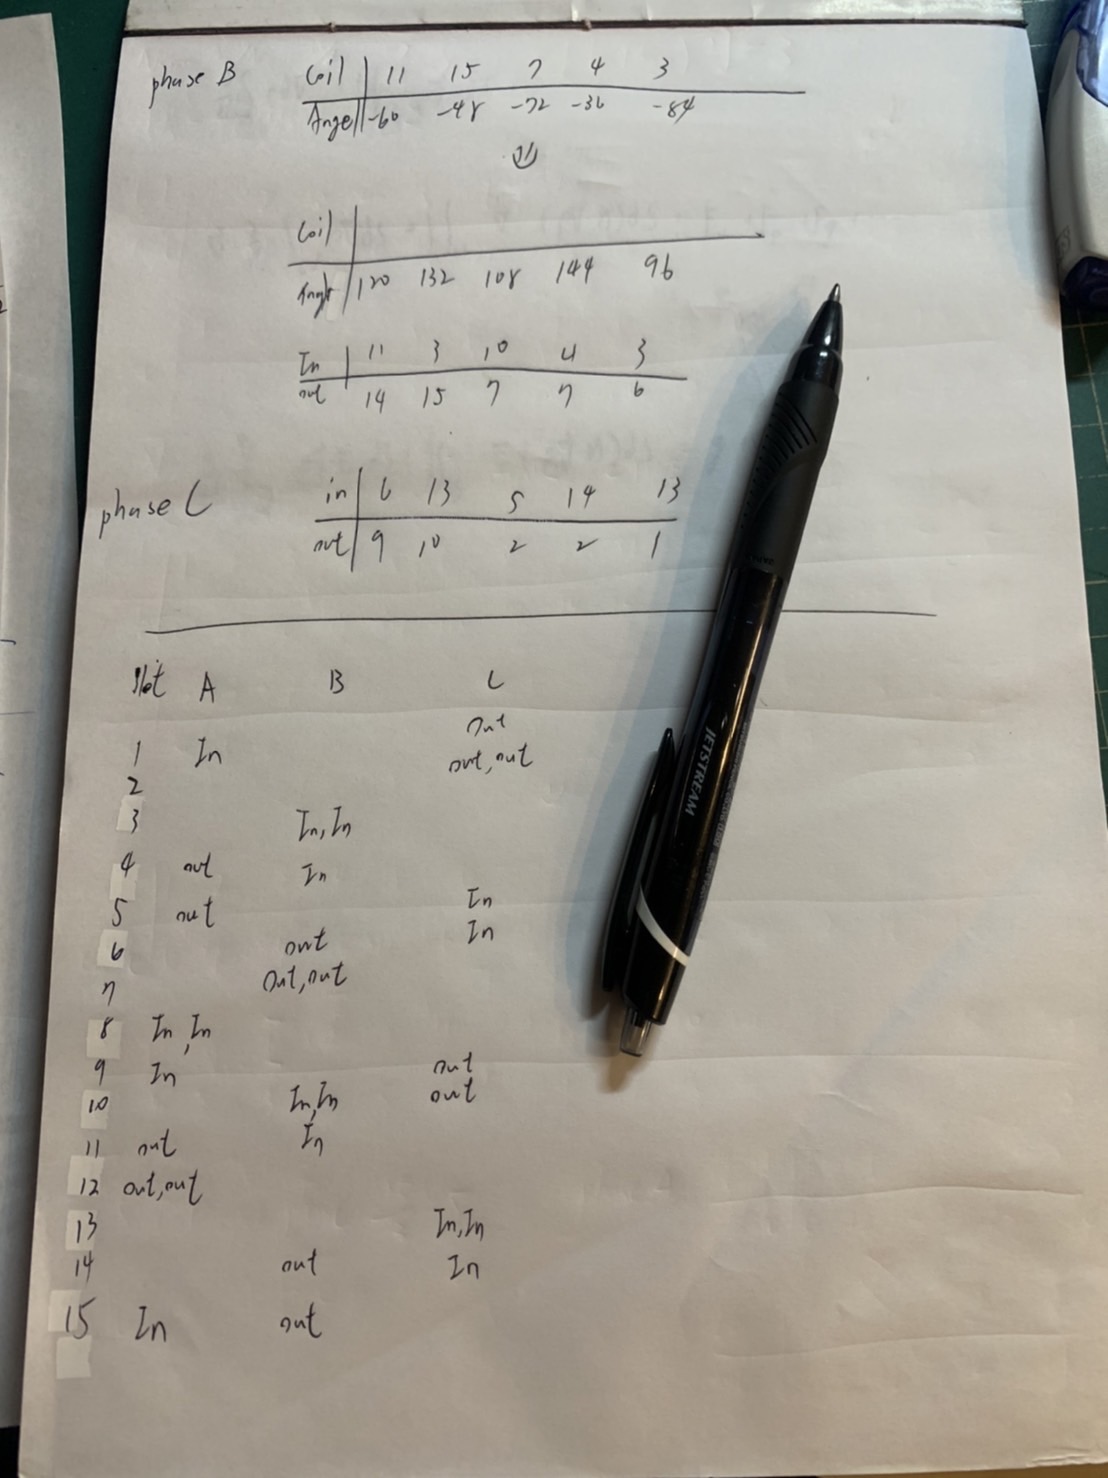 phase B Coil 11 15 7 4 3
Angel -60 -48 -72 -36 -84
Coil
Angl 120 132 108 144 96
In 11 3 10 4 3
out 14 15 7 7 6
phase C in 6 13 5 14 13
out 9 10 2 2 1
slot A B C
out
1 In out, out
2
3 In, In
4 out In
5 out In
6 out In
7 out, out
8 In, In
9 In out
10 In, In out
11 out In
12 out, out
13 In, In
14 out In
15 In out
JETSTREAM